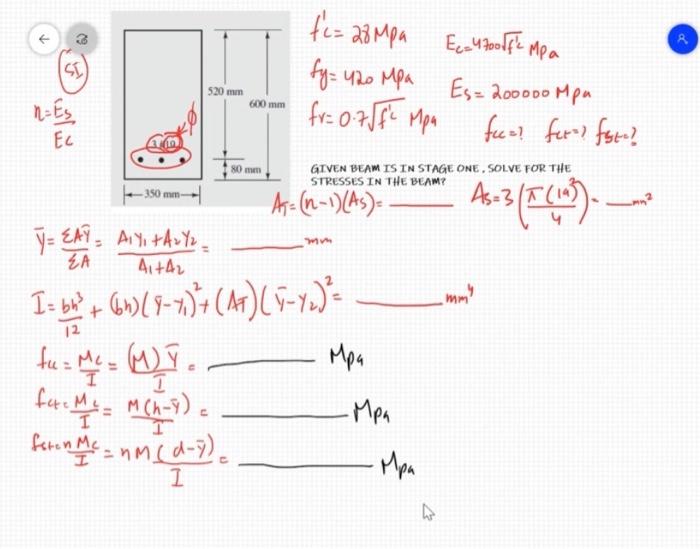 SI
n = Es/Ec
520 mm
600 mm
80 mm
350 mm
3 #19
φ
f'c = 28 Mpa
fy = 420 Mpa
fr = 0.7√f'c Mpa
Ec = 4700√f'c Mpa
Es = 200000 Mpa
fcc = ? fct = ? fst = ?
GIVEN BEAM IS IN STAGE ONE. SOLVE FOR THE
STRESSES IN THE BEAM?
AT = (n-1)(As) = ______ As = 3(π(19)²/4) = __ mm²
ȳ = ΣAȳ/ΣA = A1Y1 + A2Y2/A1 + A2 = ______ mm
I = bh³/12 + (bh)(ȳ-y1)² + (AT)(ȳ-y2)² = ______ mm⁴
fcc = Mc/I = (M)ȳ/I = ______ Mpa
fct = Mc/I = M(h-ȳ)/I = ______ Mpa
fst = n Mc/I = nM(d-ȳ)/I = ______ Mpa